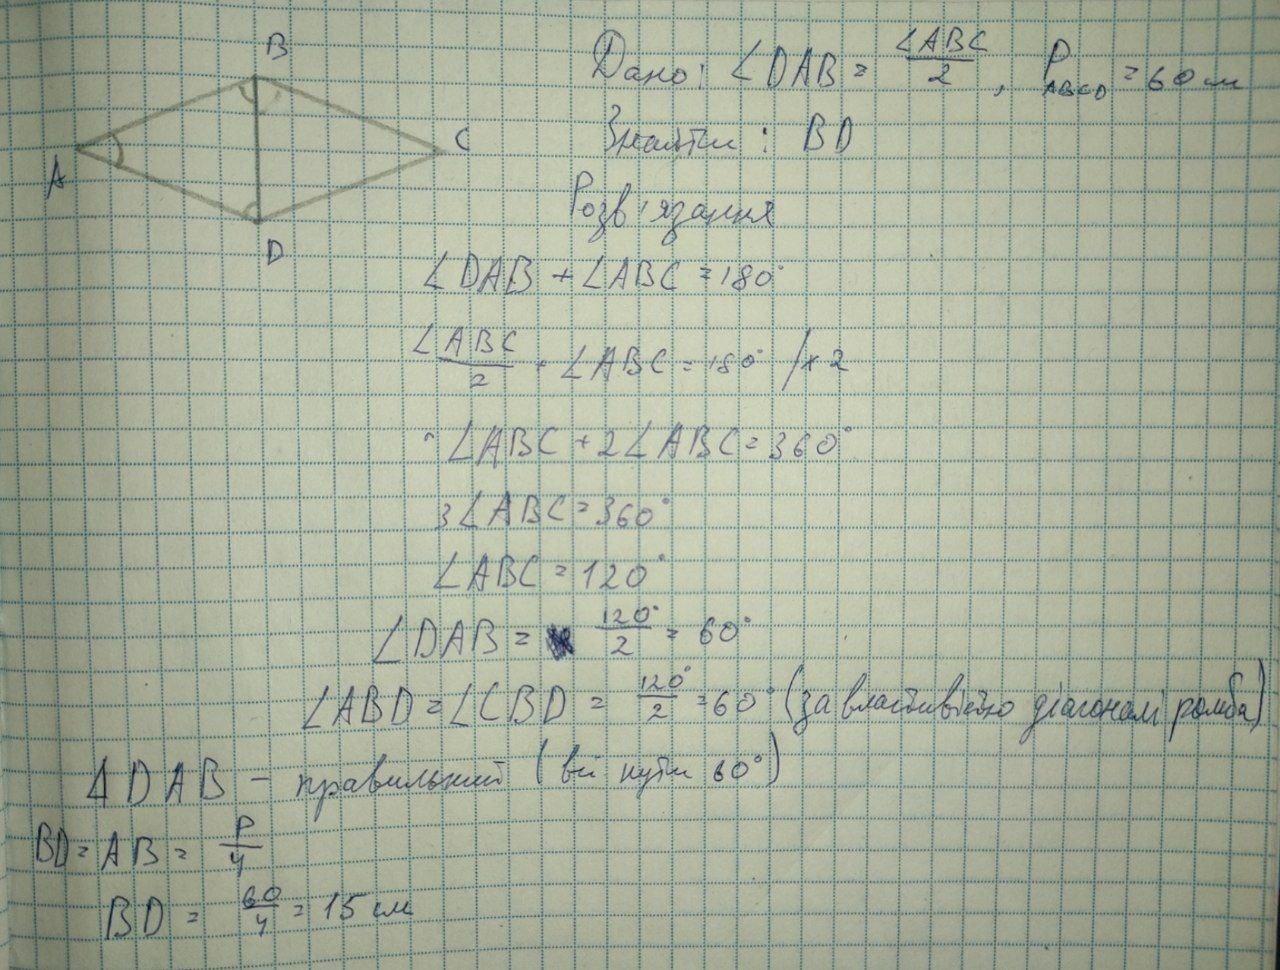 B
A
C
D
Дано: ∠DAB = ∠ABC/2, P ABCD = 60 см
Знайти: BD
Розв'язання
∠DAB + ∠ABC = 180°
∠ABC/2 + ∠ABC = 180° /× 2
∠ABC + 2∠ABC = 360°
3∠ABC = 360°
∠ABC = 120°
∠DAB = 120°/2 = 60°
∠ABD = ∠CBD = 120°/2 = 60° (за властивістю діагоналі ромба)
ΔDAB – правильний (всі кути 60°)
BD = AB = P/4
BD = 60/4 = 15 см